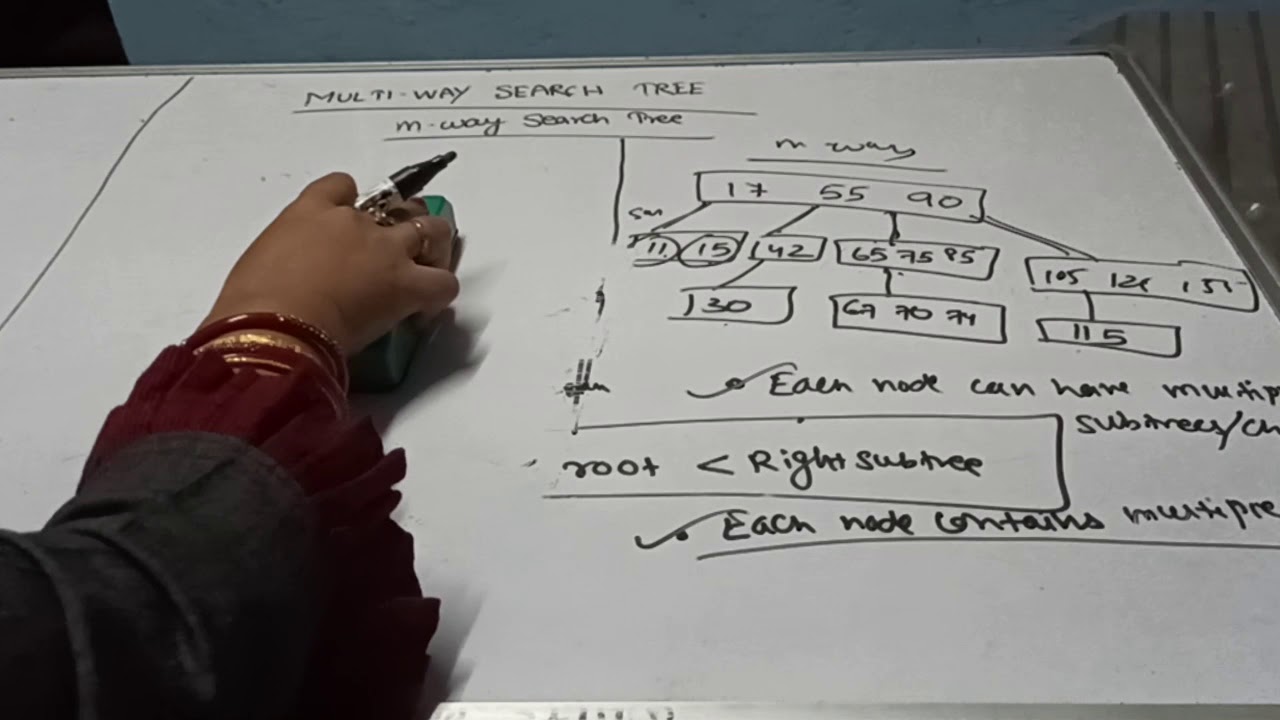 MULTI-WAY SEARCH TREE
m-way Search Tree
m way
17 55 90
11 15 42 65 75 85 105 126
130 67 70 74 115
Each node can have
subtrees/
root < Right subtree
Each node contains